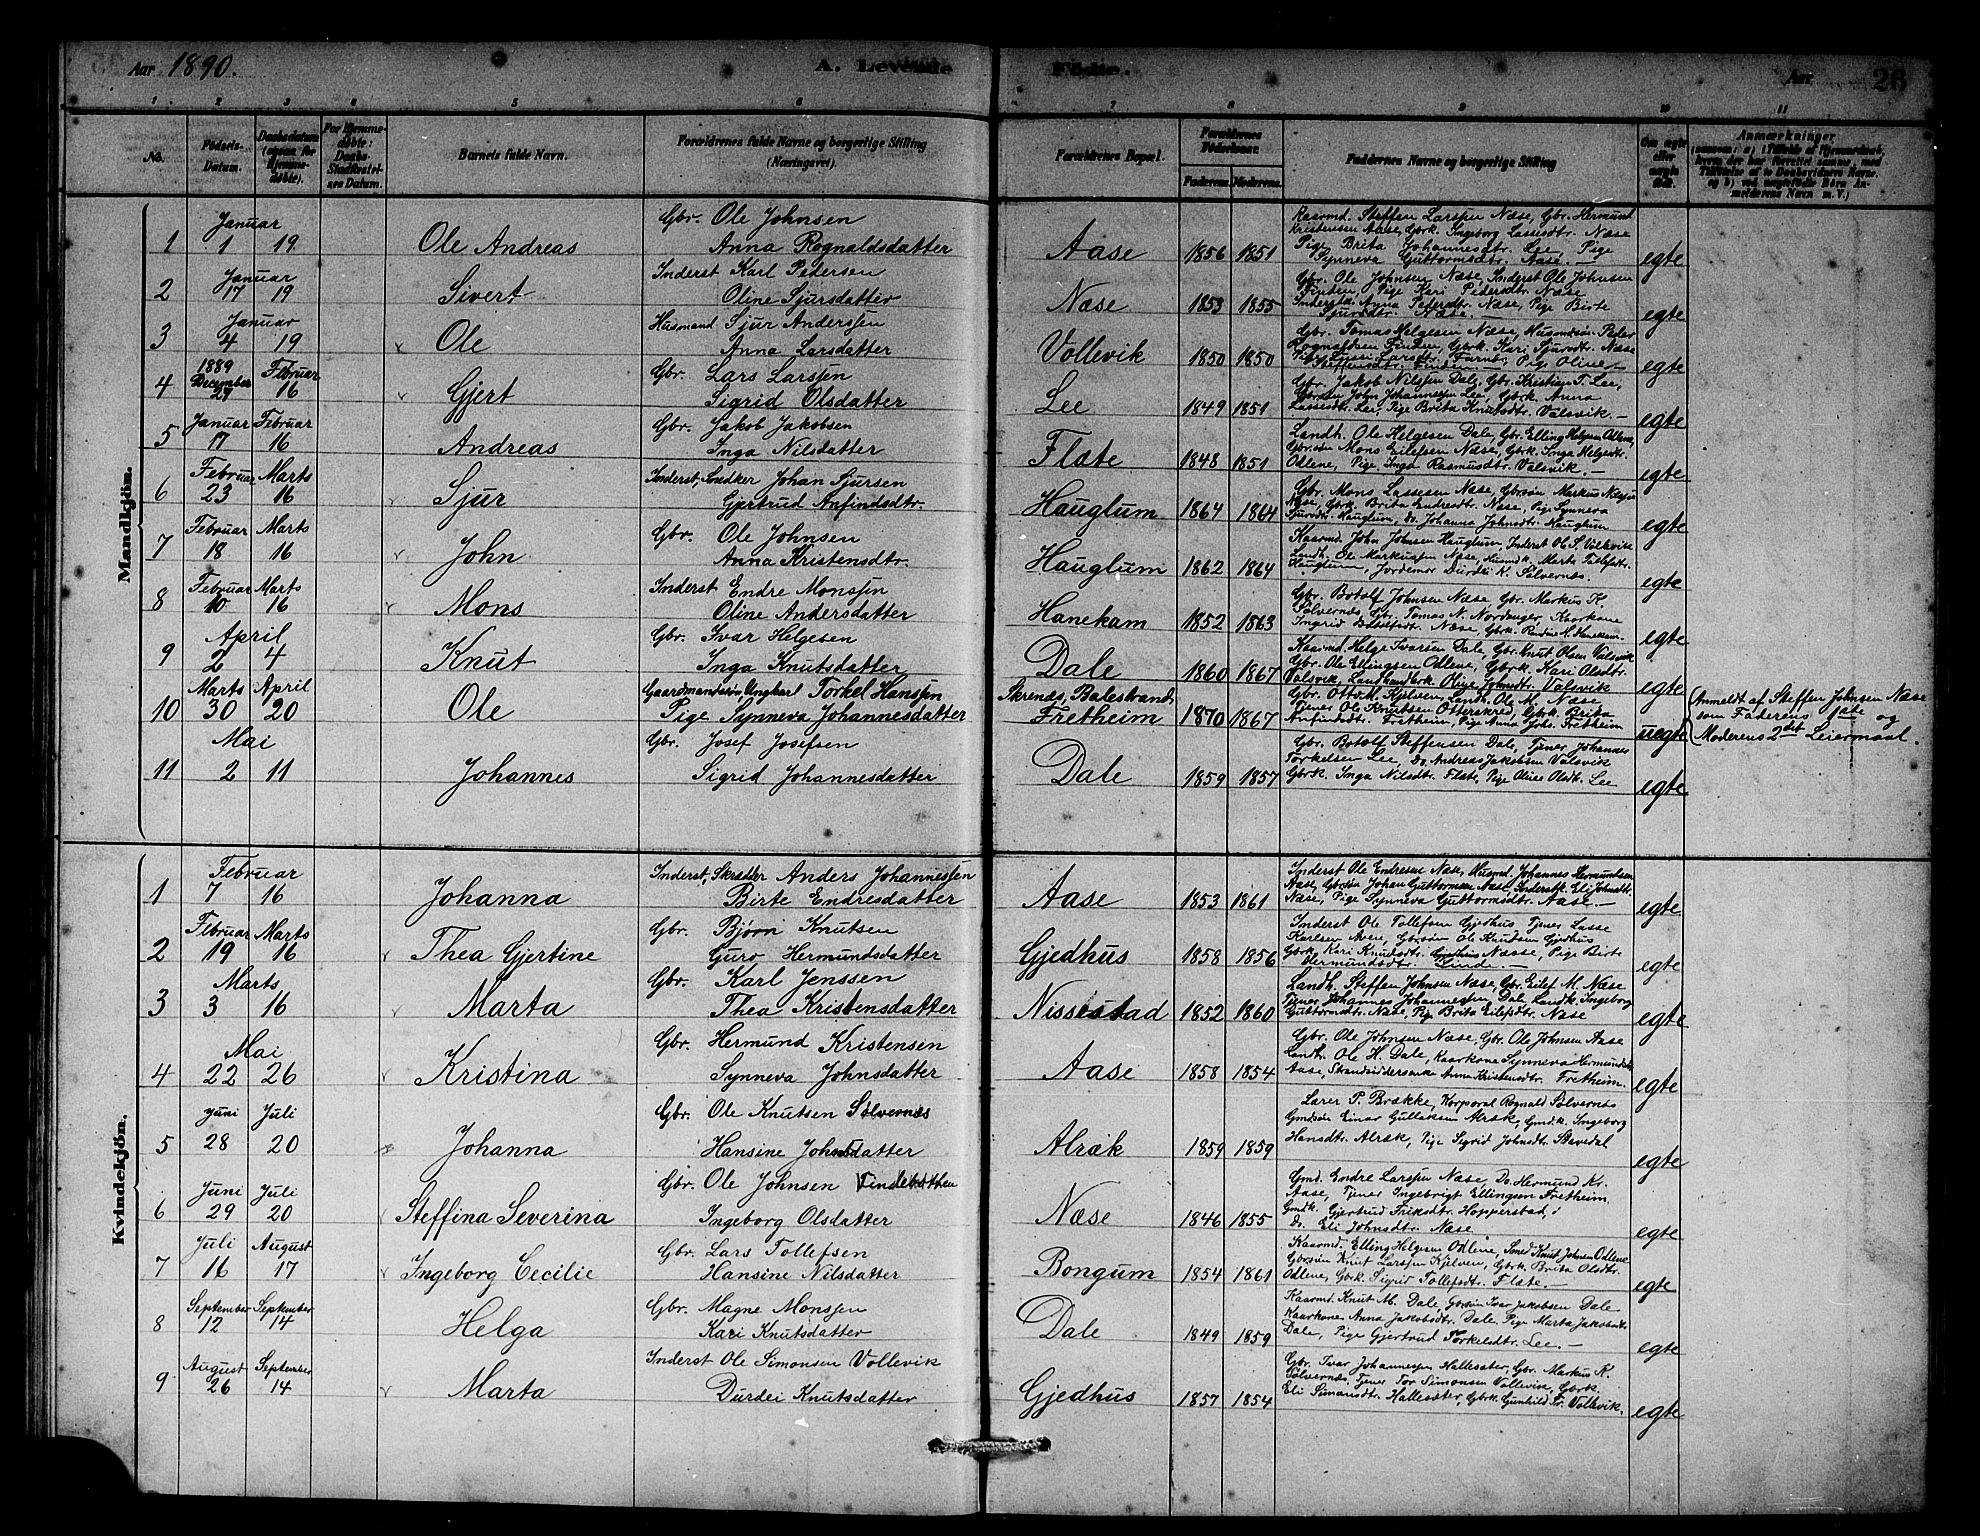 Aar 1890.
A. Levende
Fødte.
Aar
26
1 2 3 4 5 6 7 8 9 10 11
No.
Fødsels-Datum.
Daabsdatum (ogsaa for Hjemme-døbte).
For Hjemme-døbte: Daabs-Stadfæstel-ses Datum.
Barnets fulde Navn.
Forældrenes fulde Navne og borgerlige Stilling (Næringsvei).
Forældrenes Bopæl.
Forældrenes Fødselsaar.
Faderens. Moderens.
Faddernes Navne og borgerlige Stilling
Om ægte eller uægte født.
Anmærkninger
Mandkjön.
1 Januar 1 19 Ole Andreas Gbr. Ole Johnsen
Anna Rognaldsdatter Aase 1856 1851 egte
Kaarmd. Steffen Larssen Næse, Gbr. Hermund
Kristensen Aase, Gbrk. Ingeborg Lassesdtr. Næse
Pige Brita Johannesdtr. Lee, Pige
Synneva Guttormsdtr. Aase.
2 Januar 17 19 Sivert Inderst Karl Pedersen
Oline Sjursdatter Næse 1853 1855 egte
Gbr. Ole Johnsen Næse, Inderst Ole Johnsen
Finden, Pige Kari Pedersdtr. Næse
Inderstk. Anna Pedersdtr. Næse, Pige Birte
Sjursdtr. Næse.
3 Januar 4 19 Ole Husmand Sjur Anderssen
Anna Larsdatter Vollevik 1850 1850 egte
Gbr. Tomas Helgesen Næse, Husmdsön Peder
Rognaldsen Finden, Gbrk. Kari Sjursdtr. Næse
4 1889 December 27 Februar 16 Gjert Gbr. Lars Larssen
Sigrid Olsdatter Lee 1849 1851 egte
Gbr. Jakob Nilssen Dale, Gbr. Kristian T. Lee,
Gbrsön John Johannessen Lee, Gbrk. Anna
Lassesdtr. Lee, Pige Brita Knutsdtr. Valsvik.
5 Januar 17 Februar 16 Andreas Gbr. Jakob Jakobsen
Inga Nilsdatter Flæte 1848 1851 egte
Landh. Ole Helgesen Dale, Gbr. Elling Helgesen Odlene,
Gbrsön Mons Eilefsen Næse, Gbrk. Inga Helgesdtr.
Odlene, Pige Inga Rasmusdtr. Valsvik.
6 Februar 23 Marts 16 Sjur Inderst, Snedker Johan Sjursen
Gjertrud Anfindsdtr. Hauglum 1864 1864 egte
Gbr. Mons Lassesen Næse, Gbrsön Markus Nilssen
Næse, Gbrk. Brita Endresdtr. Næse, Pige Synneva
Sjursdtr. Hauglum, do. Johanna Johnsdtr. Hauglum
7 Februar 18 Marts 16 John Gbr. Ole Johnsen
Anna Kristensdtr. Hauglum 1862 1864 egte
Kaarmd. John Johnsen Hauglum, Inderst Ole S. Vollevik
Landh. Ole Markussen Næse, Husmdk. Marta Tollefsdtr.
Hauglum, Jordemor Durdei K. Sölvernæs.
8 Februar 10 Marts 16 Mons Inderst Endre Monssen
Oline Andersdatter Hanekam 1852 1863 egte
Gbr. Botolf Johnsen Næse, Gbr. Markus K.
Sölvernæs, Gbr. Tomas N. Nordanger, Kaarkone
Ingrid Botolfsdtr. Næse, Gbrk. Randine M. Hanekam.
9 April 2 4 Knut Gbr. Ivar Helgesen
Inga Knutsdatter Dale 1860 1867 egte
Kaarmd. Helge Ivarsen Dale, Gbr. Knut Olsen Valsvik
Gbr. Ole Ellingsen Odlene, Gbrk. Kari Olsdtr.
Valsvik, Landhandlerk. Oline Johnsdtr. Valsvik
10 Marts 30 April 20 Ole Gaardmandssön, Ungkarl Torkel Hanssen
Pige Synneva Johannesdatter Skrenæs, Balestrand, Fretheim 1870 1867 uegte
Gbr. Otte M. Kjelven, Landh. Ole M. Næse
Tjener Ole Knutsen Otterskred, Gbrk. Brita
Anfindsdtr. Fretheim, Pige Anna Johs. Fretheim
(Anmeldt af Steffen Johnsen Næse
som Faderens 1ste og
Moderens 2det Leiermaal.
11 Mai 2 11 Johannes Gbr. Josef Josefsen
Sigrid Johannesdatter Dale 1859 1857 egte
Gbr. Botolf Steffensen Dale, Tjener Johannes
Torkelsen Lee, Do. Andreas Jakobsen Valsvik
Gbrk. Inga Nilsdtr. Flæte, Pige Oline Olsdtr. Lee
Kvindekjön.
1 Februar 7 16 Johanna Inderst, Skrædder Anders Johannessen
Birte Endresdatter Aase 1853 1861 egte
Inderst Ole Endresen Næse, Husmd. Johannes Hermundsen
Aase, Gbrsön Johan Guttormsen Næse, Inderstk. Eli Johnsdtr.
Næse, Pige Synneva Guttormsdtr. Aase.
2 Februar 19 Marts 16 Thea Gjertine Gbr. Björn Knutsen
Guro Hermundsdatter Gjedhus 1858 1856 egte
Inderst Ole Tollefsen Gjedhus, Tjener Lasse
Karlsen Aven, Gbrsön Ole Knutsen Gjedhus
Gbrk. Kari Knudsdtr. Næsse, Pige Birte
Hermundsdtr. Linde.
3 Marts 3 16 Marta Gbr. Karl Jenssen
Thea Kristensdatter Nissestad 1852 1860 egte
Landh. Steffen Johnsen Næse, Gbr. Eilef M. Næse
Tjener Johannes Johannessen Dale, Landk. Ingeborg
Guttormsdtr. Næse, Pige Brita Eilefsdtr. Næse
4 Mai 22 26 Kristina Gbr. Hermund Kristensen
Synneva Johnsdatter Aase 1858 1854 egte
Gbr. Ole Johnsen Næse, Gbr. Ole Johnsen Aase
Landh. Ole H. Dale, Kaarkone Synneva Hermundsdtr.
Aase, Strandsidderenke Anna Kristensdtr. Fretheim.
5 Juni 28 Juli 20 Johanna Gbr. Ole Knutsen Sölvernæs
Hansine Johnsdatter Alræk 1859 1859 egte
Lærer P. Brække, Korporal Rognald Sölvernæs
Gmdsön Einar Gullaksen Alræk, Gmdk. Ingeborg
Hansdtr. Alræk, Pige Sigrid Johnsdtr. Stavedal
6 Juni 29 Juli 20 Steffina Severina Gbr. Ole Johnsen Tindebakken
Ingeborg Olsdatter Næse 1846 1855 egte
Gmd. Endre Larssen Næse, Do. Hermund Kr.
Aase, Tjener Ingebrigt Ellingsen Fretheim.
Gmdk. Gjertrud Eriksdtr. Hopperstad,
Do. Eli Johnsdtr. Næse.
7 Juli 16 August 17 Ingeborg Cecilie Gbr. Lars Tollefsen
Hansine Nilsdatter Bongum 1854 1861 egte
Kaarmd. Elling Helgesen Odlene, Smed Knut Johnsen Odlene
Gbrsön Knut Larssen Kjelven, Gbrk. Brita Olsdtr.
Odlene, Gbrk. Sigrid Tollefsdtr. Flæte.
8 September 12 September 14 Helga Gbr. Magne Monssen
Kari Knutsdatter Dale 1849 1859 egte
Kaarmd. Knut M. Dale, Gbrsön Ivar Jakobsen Dale
Kaarkone Anna Jakobsdtr. Dale, Pige Marta Jakobsdtr.
Dale, Pige Gjertrud Torkelsdtr. Lee.
9 August 26 September 14 Marta Inderst Ole Simonsen Vollevik
Durdei Knutsdatter Gjedhus 1857 1854 egte
Gbr. Ivar Johannessen Hallesæter, Gbr. Markus K.
Sölvernæs, Tjener Tor Simonsen Vollevik, Gbrk.
Eli Simonsdtr. Hallesæter, Gbrk. Gunhild Tr. Vollevik.